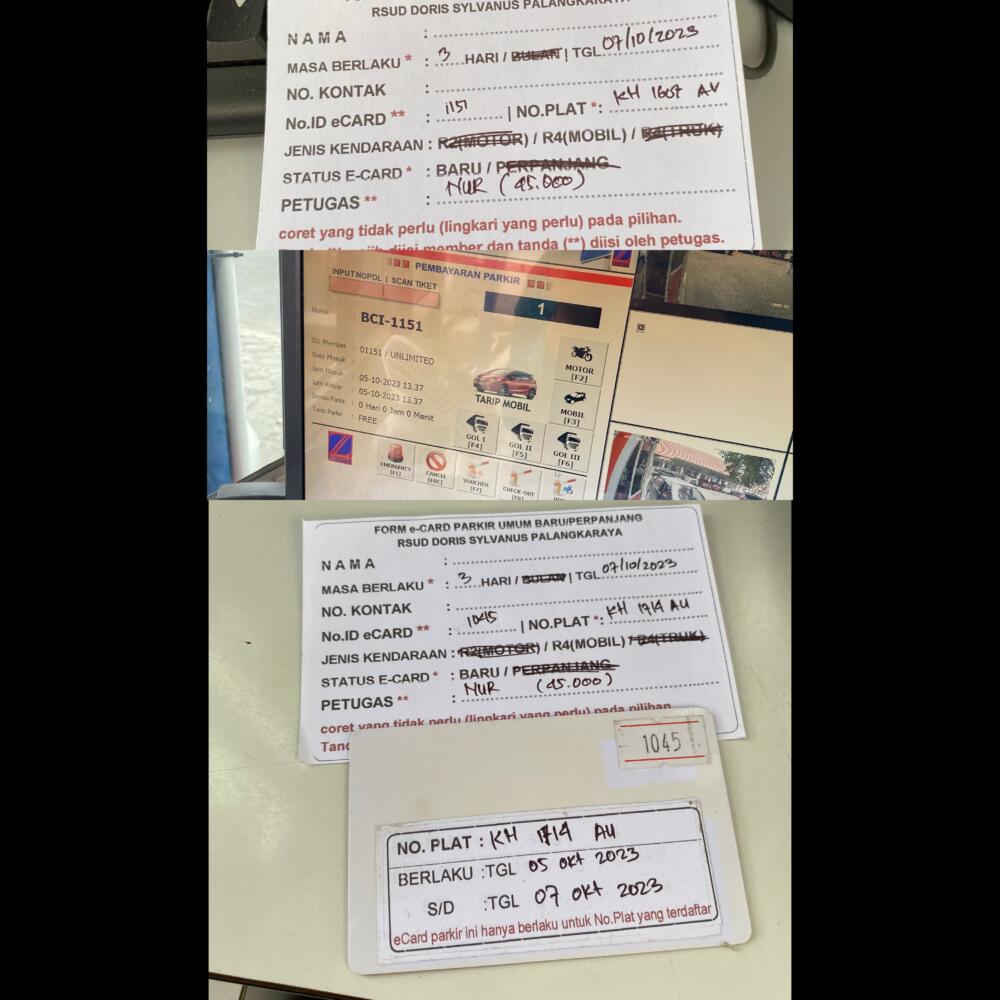 RSUD DORIS SYLVANUS PALANGKARAYA
NAMA :
MASA BERLAKU * : 3 HARI / BULAN | TGL 07/10/2023
NO. KONTAK :
No.ID eCARD ** : 1151 | NO.PLAT *: KH 1607 AV
JENIS KENDARAAN : R2(MOTOR) / R4(MOBIL) / R4(TRUK)
STATUS E-CARD * : BARU / PERPANJANG
NUR (45.000)
PETUGAS ** :
coret yang tidak perlu (lingkari yang perlu) pada pilihan.
diisi member dan tanda (**) diisi oleh petugas.
PEMBAYARAN PARKIR
INPUT NOPOL | SCAN TIKET
1
Nama : BCI-1151
ID. Member : 01151 / UNLIMITED
Gate Masuk :
Jam Masuk : 05-10-2023 13.37
Jam Keluar : 05-10-2023 13.37
Durasi Parkir : 0 Hari 0 Jam 0 Menit
Tarip Parkir : FREE
TARIP MOBIL
MOTOR
[F2]
MOBIL
[F3]
GOL I
[F4]
GOL II
[F5]
GOL III
[F6]
EMERGENCY
[F1]
CANCEL
[ESC]
VOUCHER
[F7]
CHECK-OUT
[F8]
FORM e-CARD PARKIR UMUM BARU/PERPANJANG
RSUD DORIS SYLVANUS PALANGKARAYA
NAMA :
MASA BERLAKU * : 3 HARI / BULAN | TGL 07/10/2023
NO. KONTAK :
No.ID eCARD ** : 1045 | NO.PLAT *: KH 1714 AU
JENIS KENDARAAN : R2(MOTOR) / R4(MOBIL) / R4(TRUK)
STATUS E-CARD * : BARU / PERPANJANG
NUR (45.000)
PETUGAS ** :
coret yang tidak perlu (lingkari yang perlu) pada pilihan
1045
NO. PLAT : KH 1714 AU
BERLAKU : TGL 05 OKT 2023
S/D : TGL 07 OKT 2023
eCard parkir ini hanya berlaku untuk No.Plat yang terdaftar